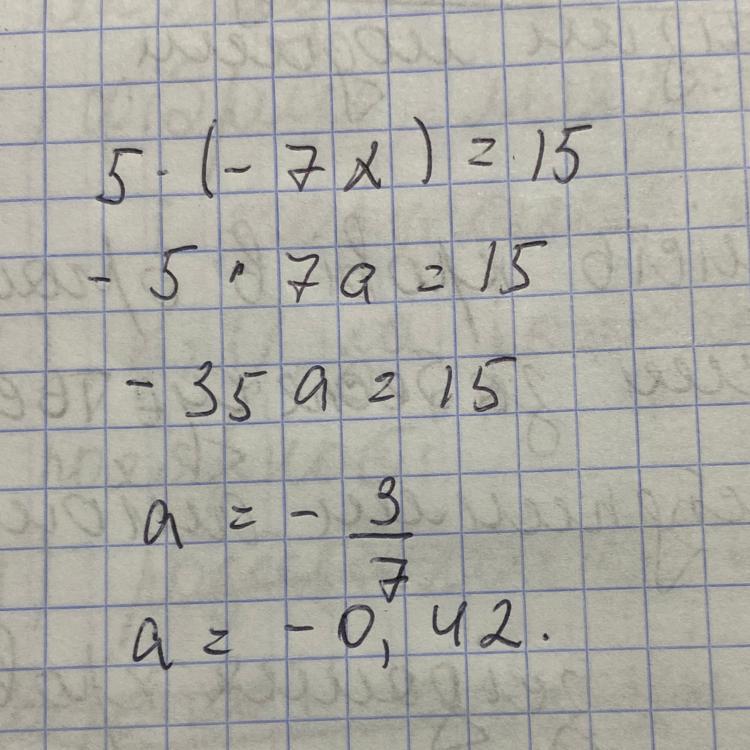 5·(-7x)=15
-5·7a=15
-35a=15
a=-3/7
a=-0,42.